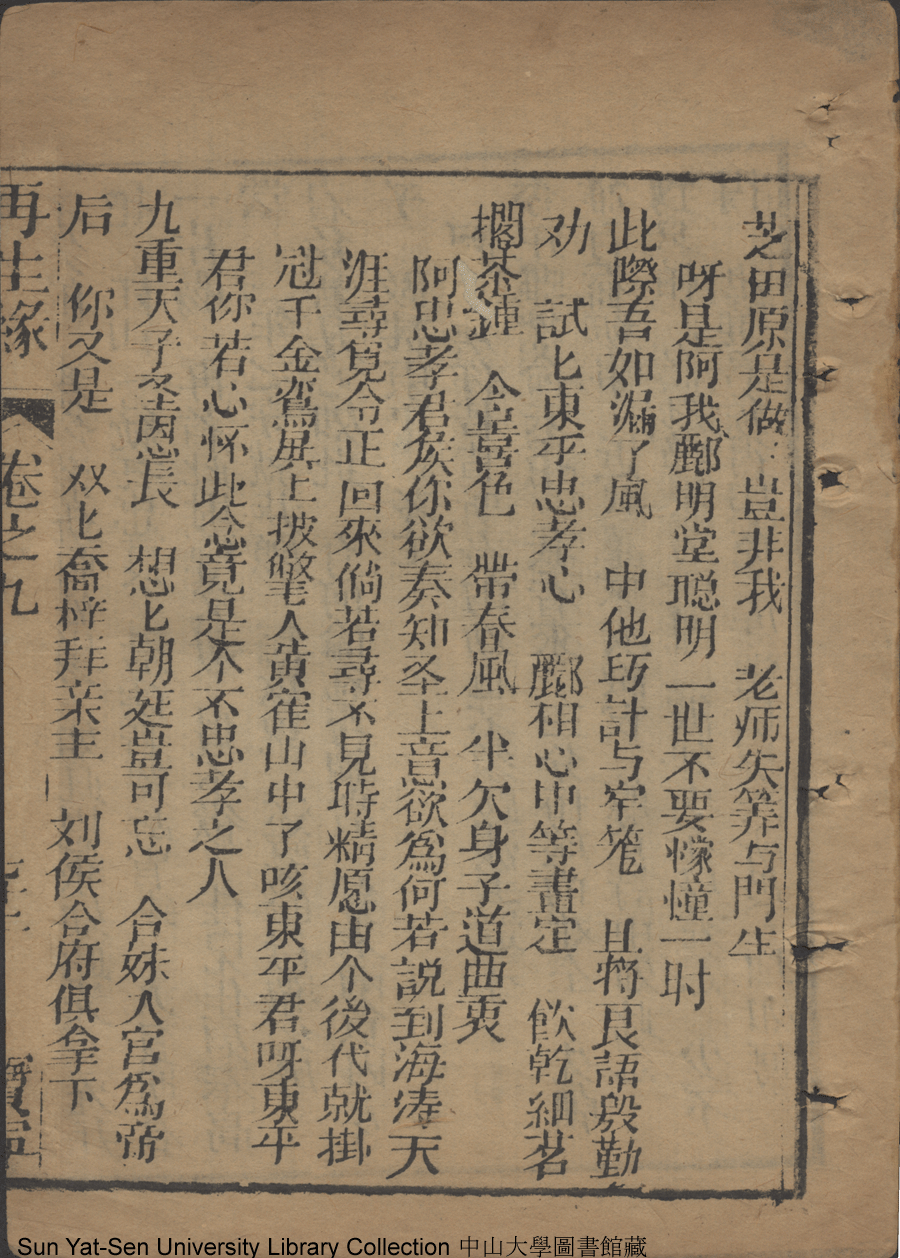 芝田原是做〻豈非我　老师失筭与門生
呀是阿我酈明堂聪明一世不要懞憧一时
此際吾如漏了風　中他巧計与牢笼　且將良語殷勤
劝　試匕東平忠孝心　酈相心中等畫定　飲乾細茗
擱茶鍾　含喜色　帶春風　半欠身子道曲衷
阿忠孝君侯你欲奏知圣上意欲爲何若説到海涛天
涯尋覓令正回來倘若尋不見時精愿由个後代就掛
冠千金鸞屏上披髪人黄山中了咳東平君呀東平
君你若心怀此念竟是个不忠孝之人
九重天子圣恩長　想匕朝廷豈可忘　合妹入宫爲帝
后　你又是　双匕喬梓拜亲王　刘侯合府俱拿下
再生緣　卷之九
Sun Yat-Sen University Library Collection 中山大學圖書館藏